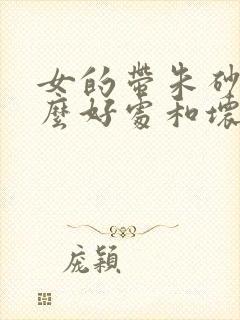 女的带朱砂
麼好處和壞
庞颖